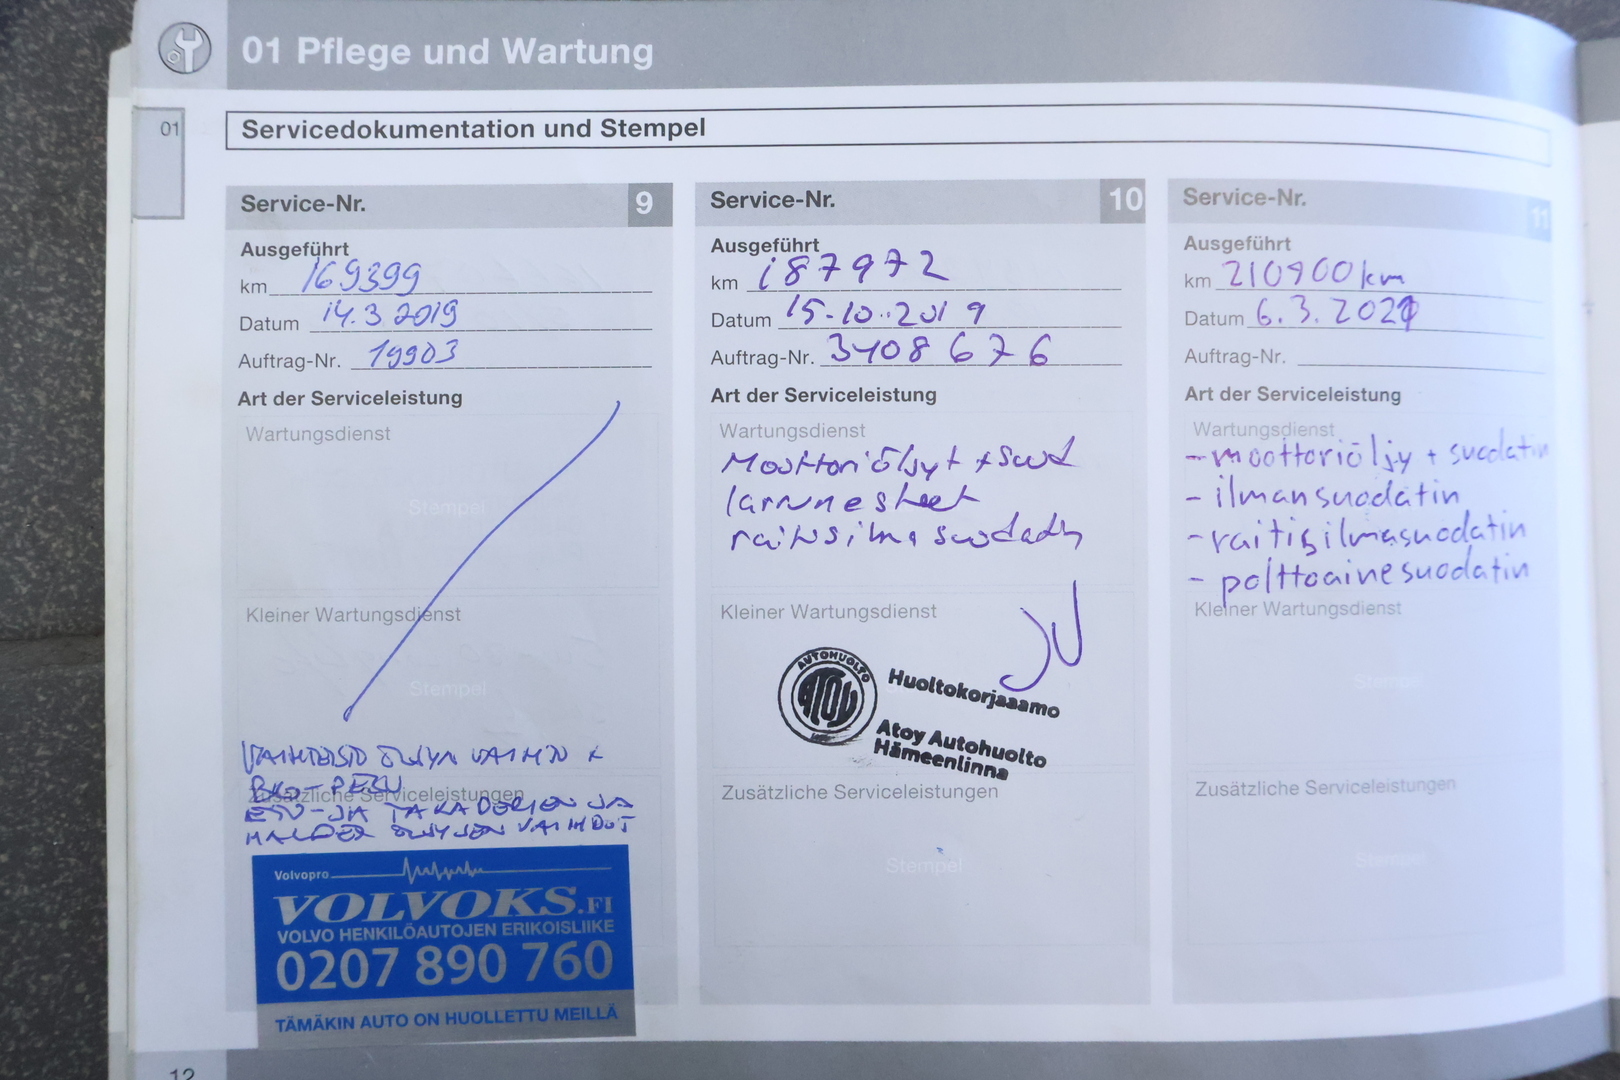 01 Pflege und Wartung
01
Servicedokumentation und Stempel
Service-Nr. 9
Ausgeführt
km 169399
Datum 14.3 2019
Auftrag-Nr. 19903
Art der Serviceleistung
Wartungsdienst
Stempel
Kleiner Wartungsdienst
Stempel
VAIHTEISTO ÖLJYN VAIHTO +
BKO-PESU
Zusätzliche Serviceleistungen
ETU-JA TAKADERIEN JA
HALDEX ÖLJYJEN VAIHDOT
Volvopro
VOLVOKS.FI
VOLVO HENKILÖAUTOJEN ERIKOISLIIKE
0207 890 760
TÄMÄKIN AUTO ON HUOLLETTU MEILLÄ
Service-Nr. 10
Ausgeführt
km 187972
Datum 15-10..2019
Auftrag-Nr. 3408676
Art der Serviceleistung
Wartungsdienst
Moottoriöljyt + suod
raitisilma suodatin
Kleiner Wartungsdienst
AUTOHUOLTO
ATOY
Huoltokorjaaamo
Atoy Autohuolto
Hämeenlinna
Zusätzliche Serviceleistungen
Stempel
Service-Nr. 11
Ausgeführt
km 210900km
Datum 6.3.2021
Auftrag-Nr.
Art der Serviceleistung
Wartungsdienst
- moottoriöljy + suodatin
- ilmansuodatin
- raitisilmasuodatin
- polttoainesuodatin
Kleiner Wartungsdienst
Stempel
Zusätzliche Serviceleistungen
Stempel
12